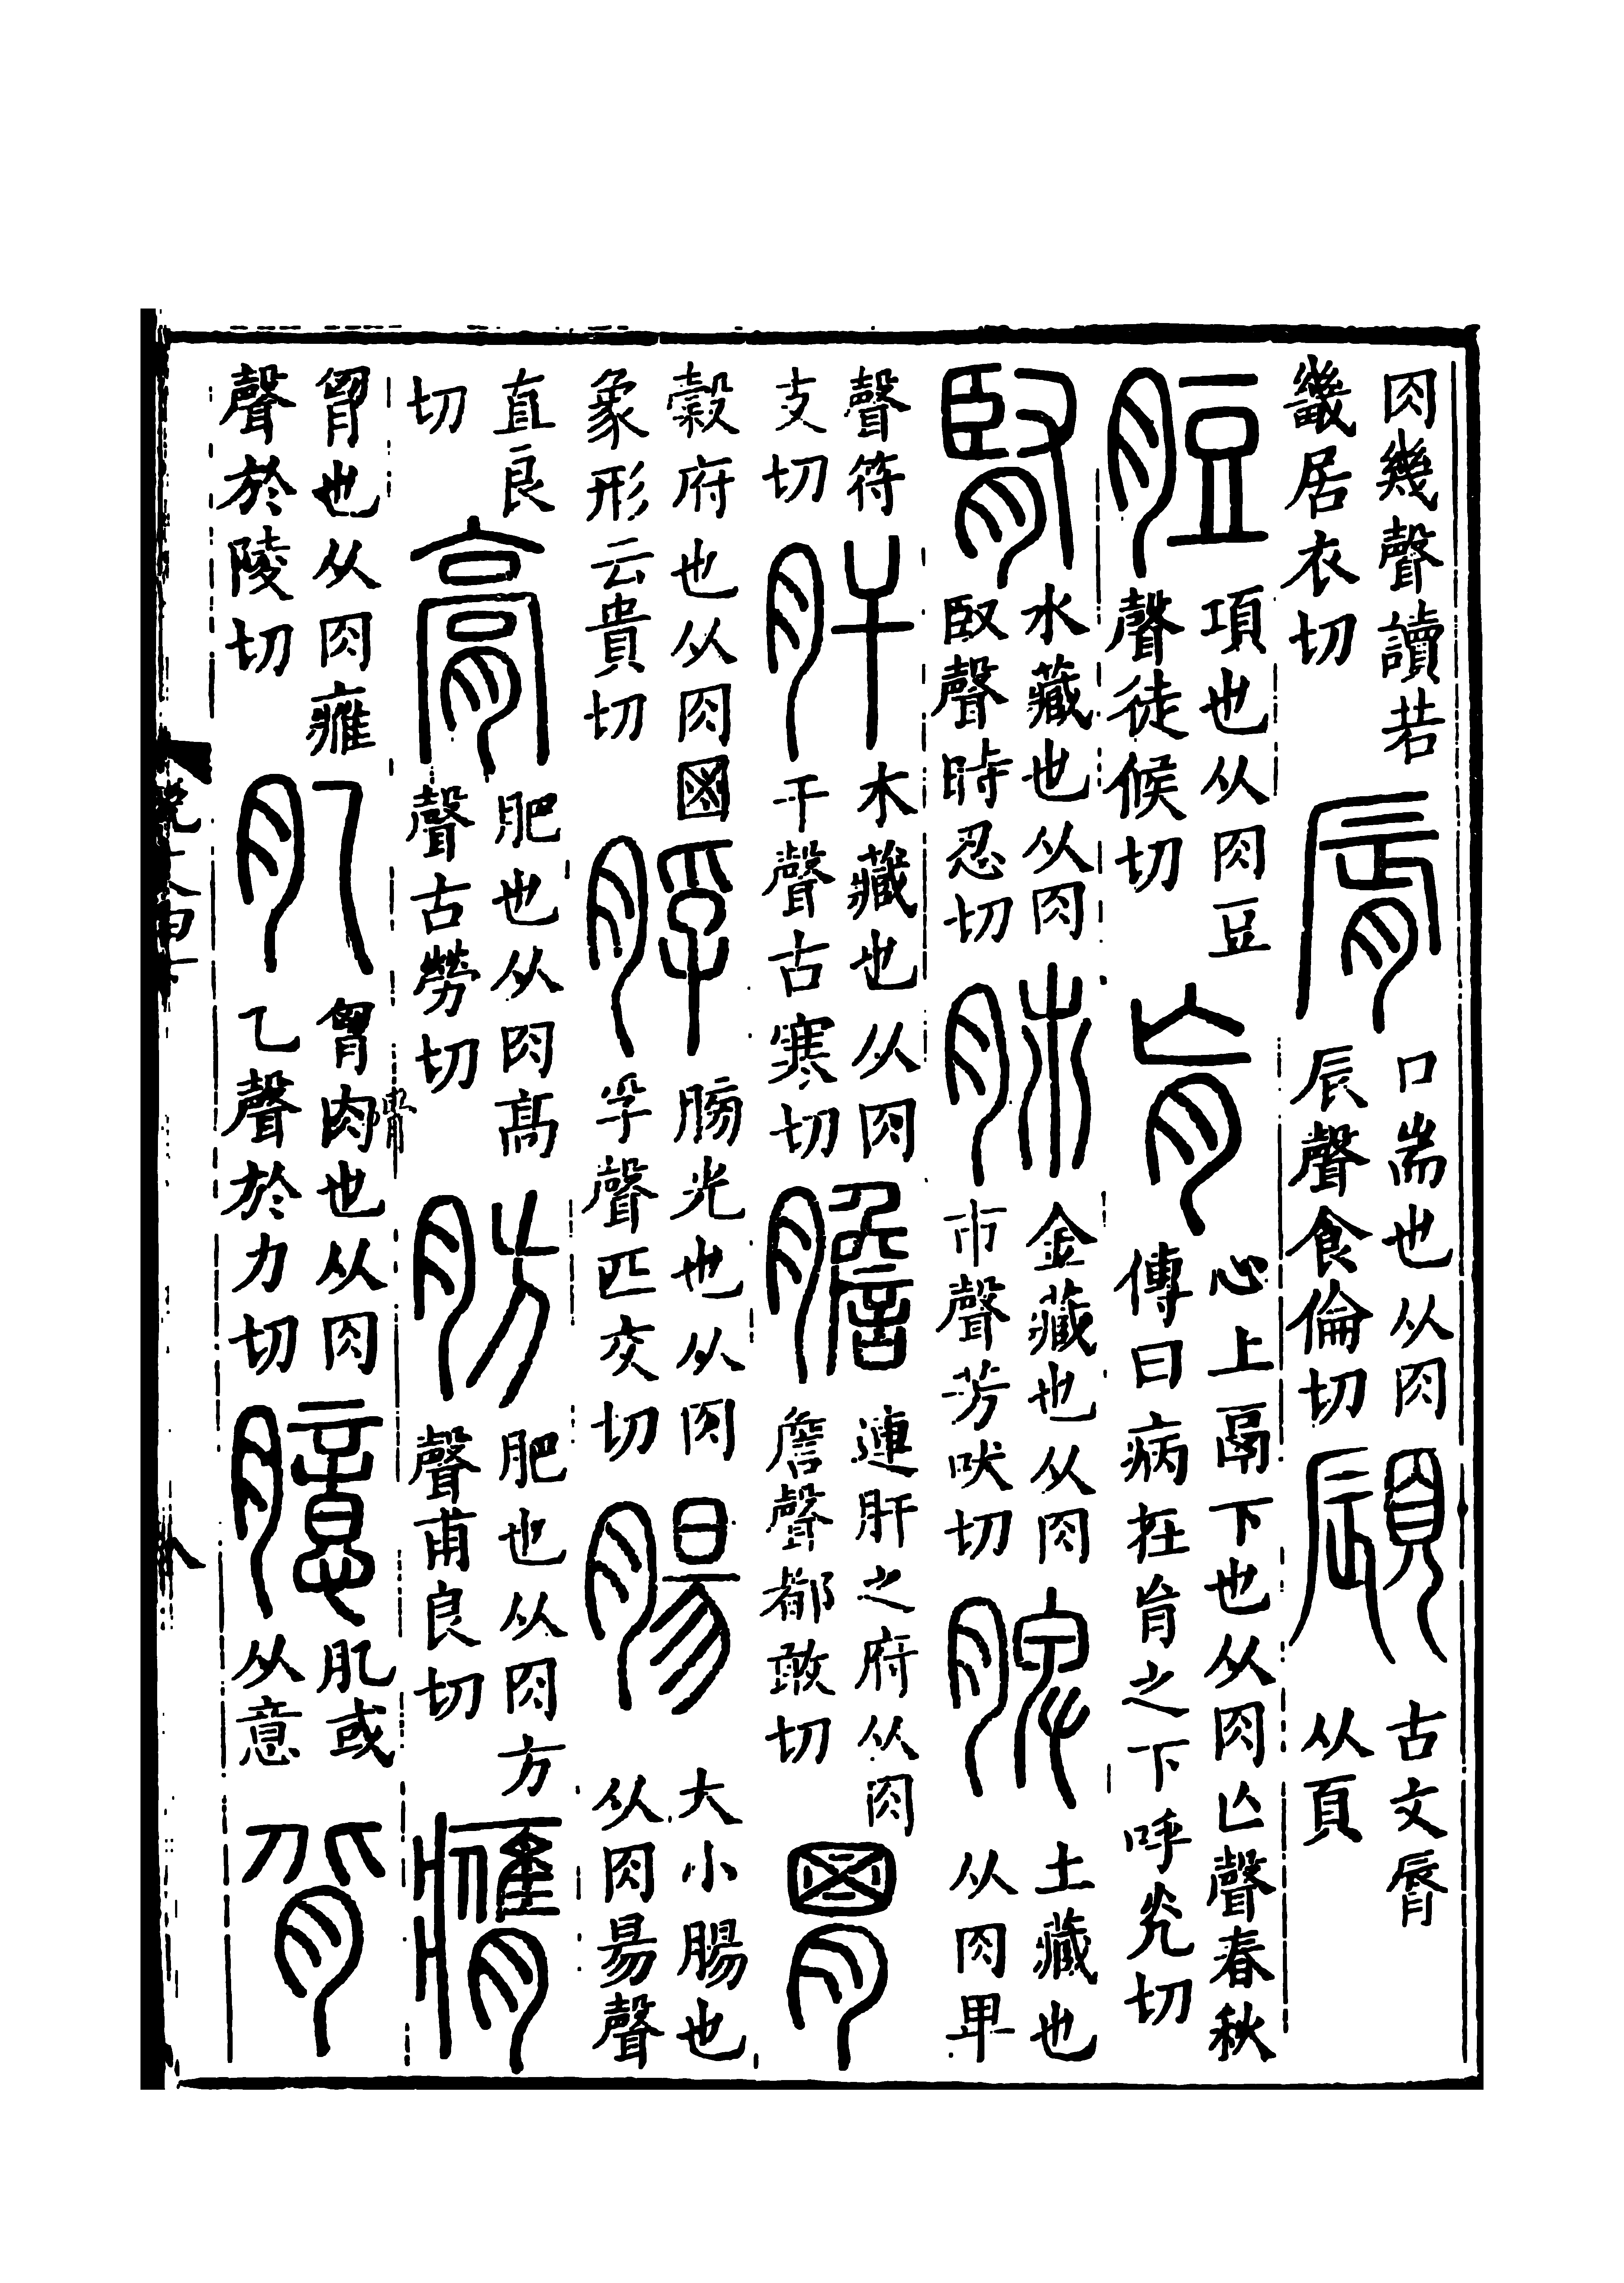 肉幾聲讀若畿居衣切脣口耑也从肉辰聲食倫切𩓠古文脣从頁
脰項也从肉豆聲徒候切肓心上鬲下也从肉亾聲春秋傳曰病在肓之下呼光切
腎水藏也从肉臤聲時忍切肺金藏也从肉巿聲芳吠切脾土藏也从肉卑
聲符支切肝木藏也从肉干聲古寒切膽連肝之府从肉詹聲都敢切胃
穀府也从肉𡇒象形云貴切脬膀光也从肉孚聲匹交切腸大小腸也从肉昜聲
直良切膏肥也从肉高聲古勞切肪肥也从肉方聲甫良切膺
胷也从肉𤸰聲於陵切肊胷肉也从肉乙聲於力切臆肊或从意背
說文四下